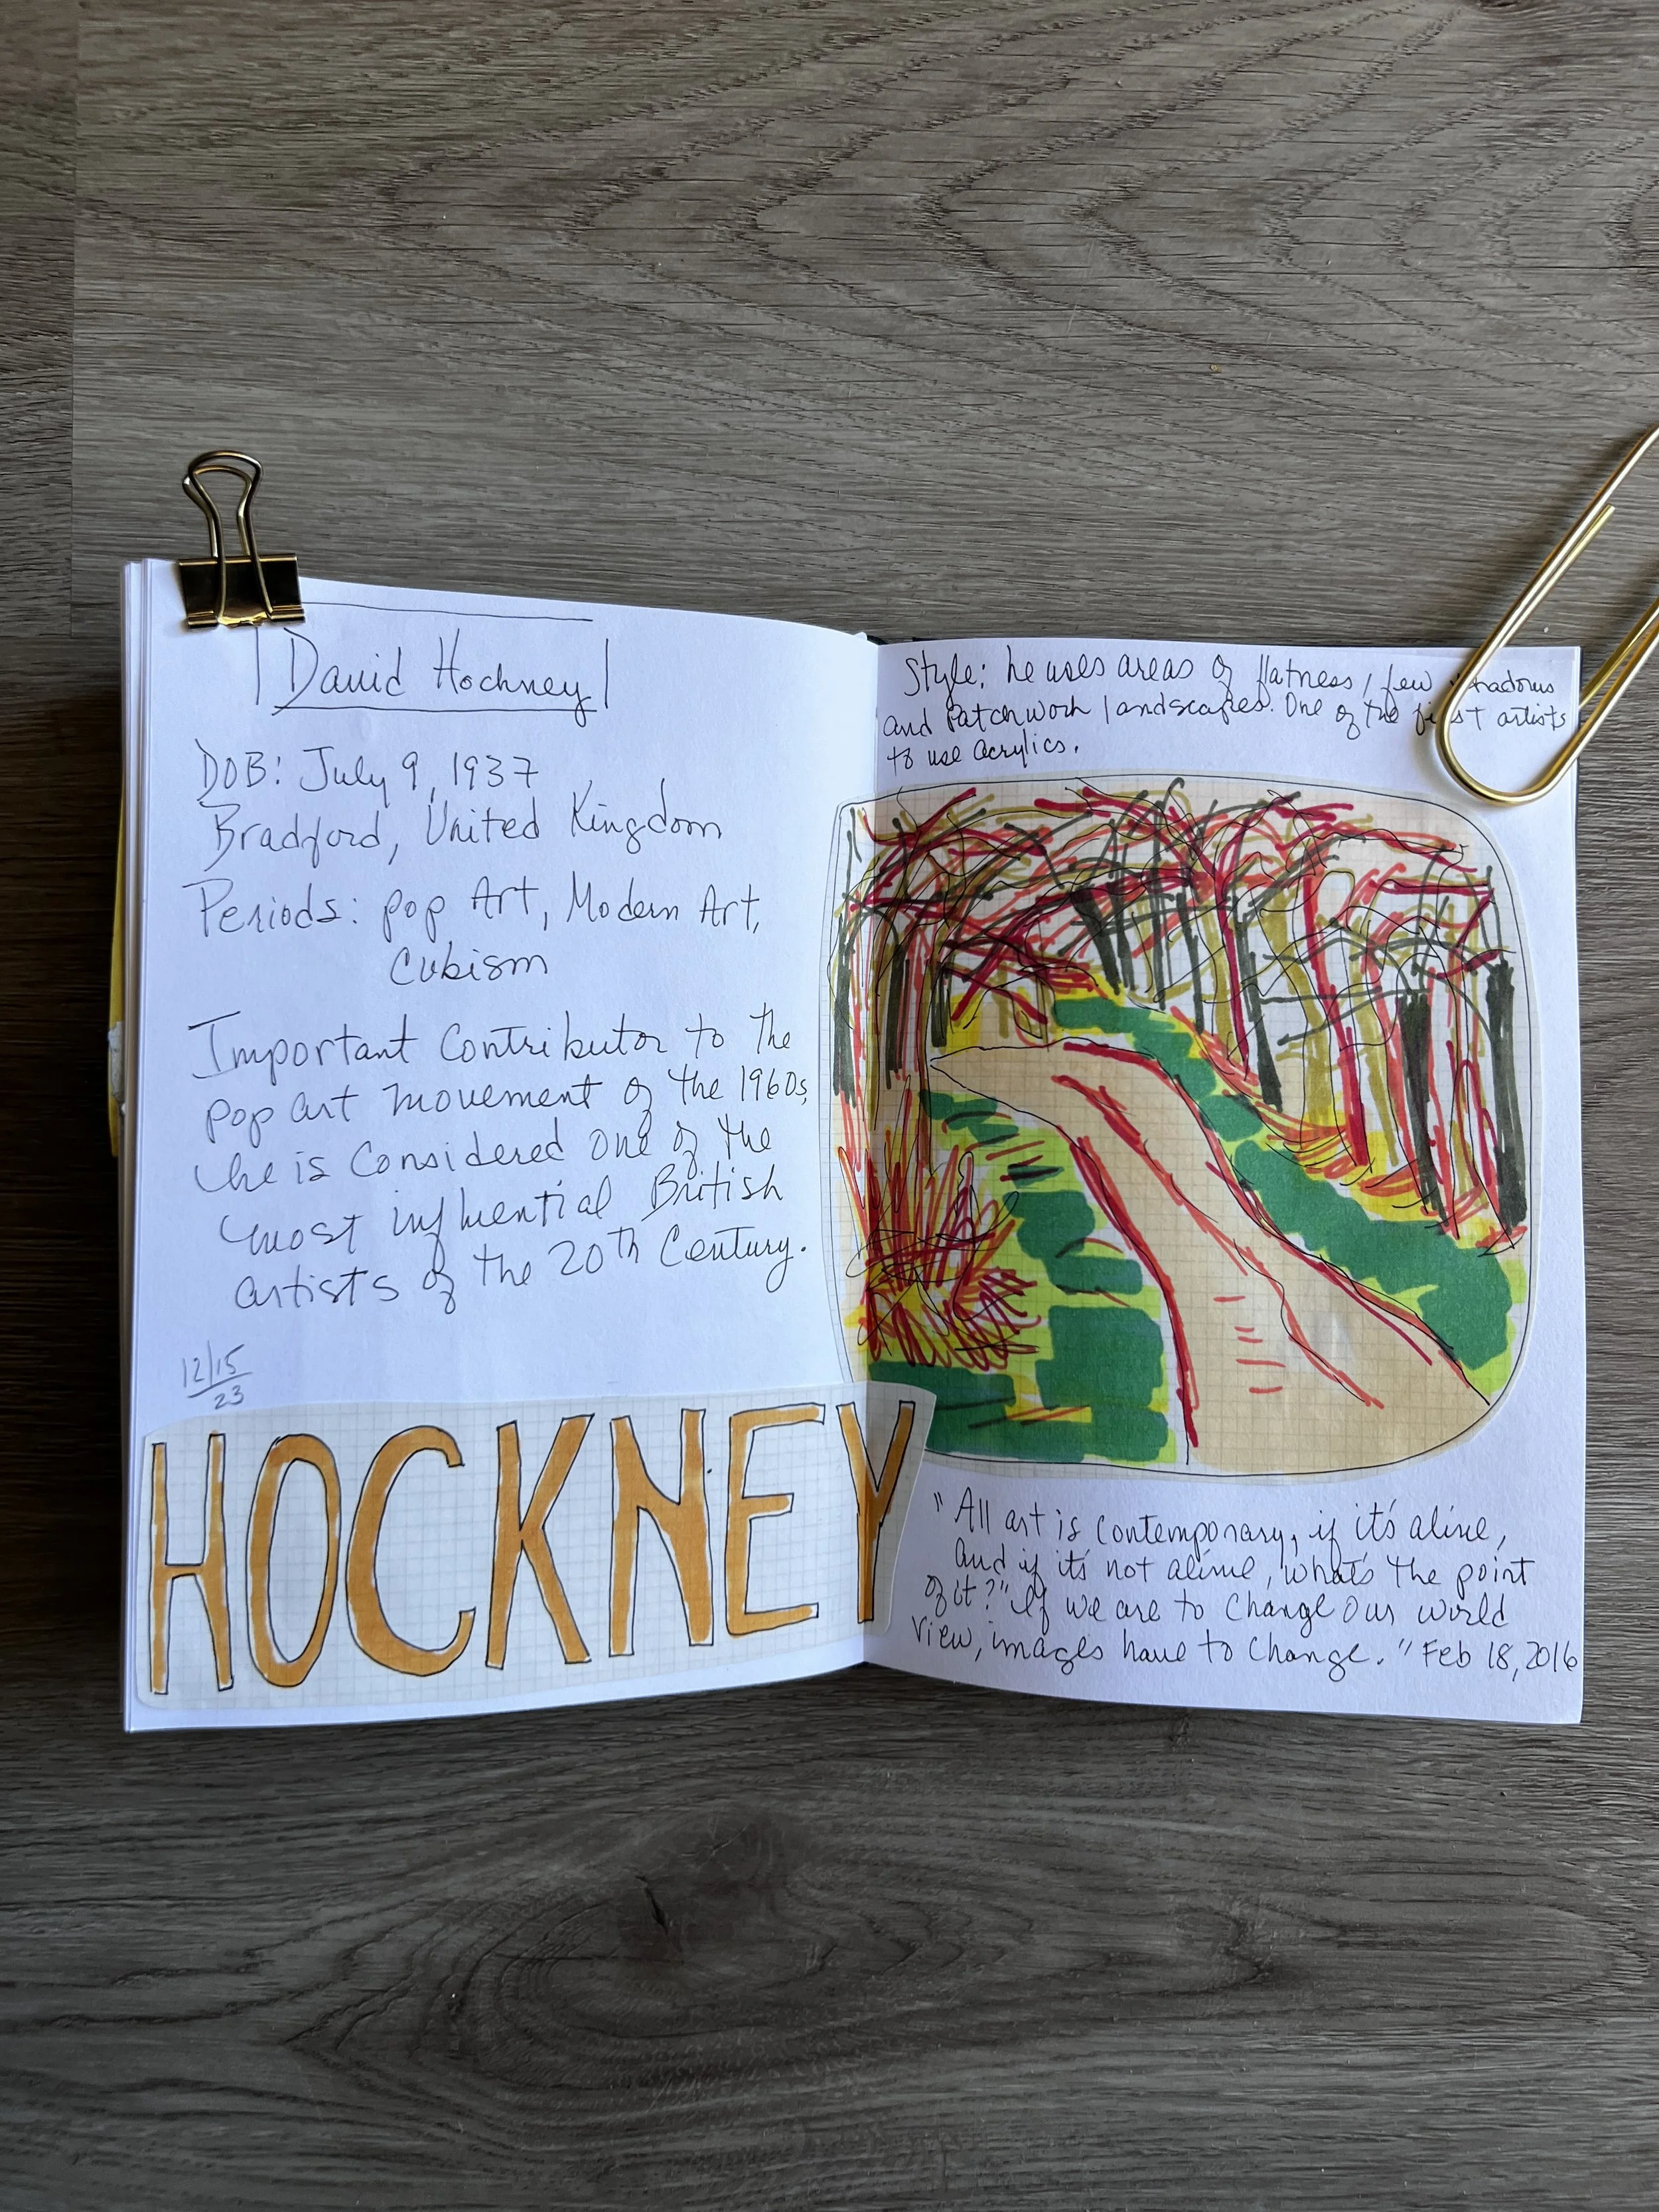 David Hockney
DOB: July 9, 1937
Bradford, United Kingdom
Periods: pop Art, Modern Art,
Cubism
Important Contributor to the
pop art movement of the 1960s,
he is Considered one of the
most influential British
artists of the 20th Century.
12/15
23
HOCKNEY
Style: he uses areas of flatness, few shadows
and Patchwork landscapes. One of the first artists
to use acrylics.
"All art is contemporary, if it's alive,
and if it's not alive, what's the point
of it?" If we are to change our world
view, images have to change." Feb 18, 2016